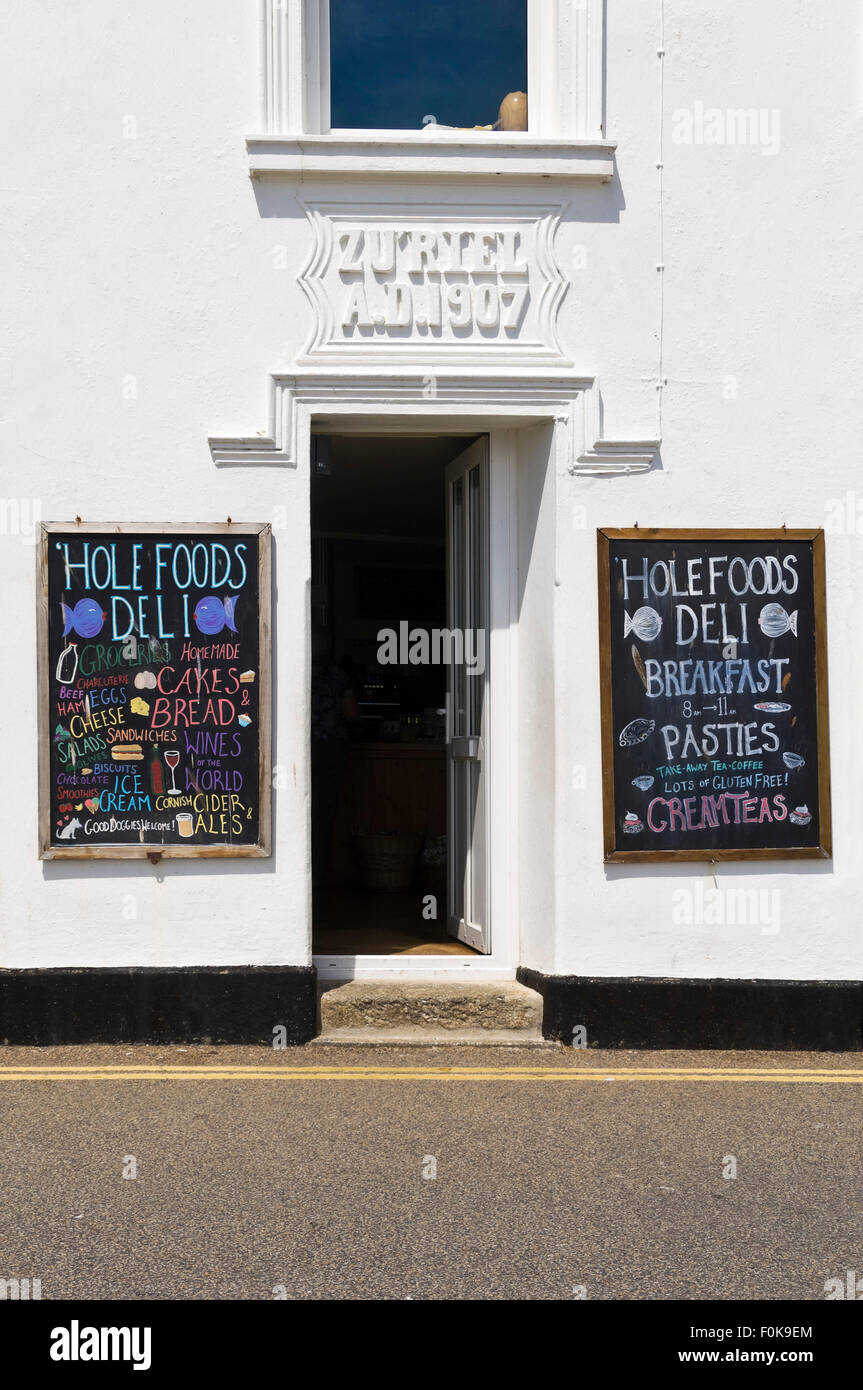 ZU'RIEL
A.D. 1907
'HOLE FOODS
DELI
GROCERIES
HOMEMADE
CHARCUTERIE
CAKES
&
BREAD
BEEF
HAM
EGGS
CHEESE
SALADS
SANDWICHES
OLIVES
BISCUITS
CHOCOLATE
SMOOTHIES
ICE
CREAM
WINES
OF THE
WORLD
CORNISH CIDER
&
ALES
GOOD DOGGIES WELCOME!
'HOLE FOODS
DELI
BREAKFAST
8 AM → 11 AM
PASTIES
TAKE-AWAY TEA-COFFEE
LOTS OF GLUTEN FREE!
CREAM TEAS
alamy stock photo
F0K9EM
www.alamy.com